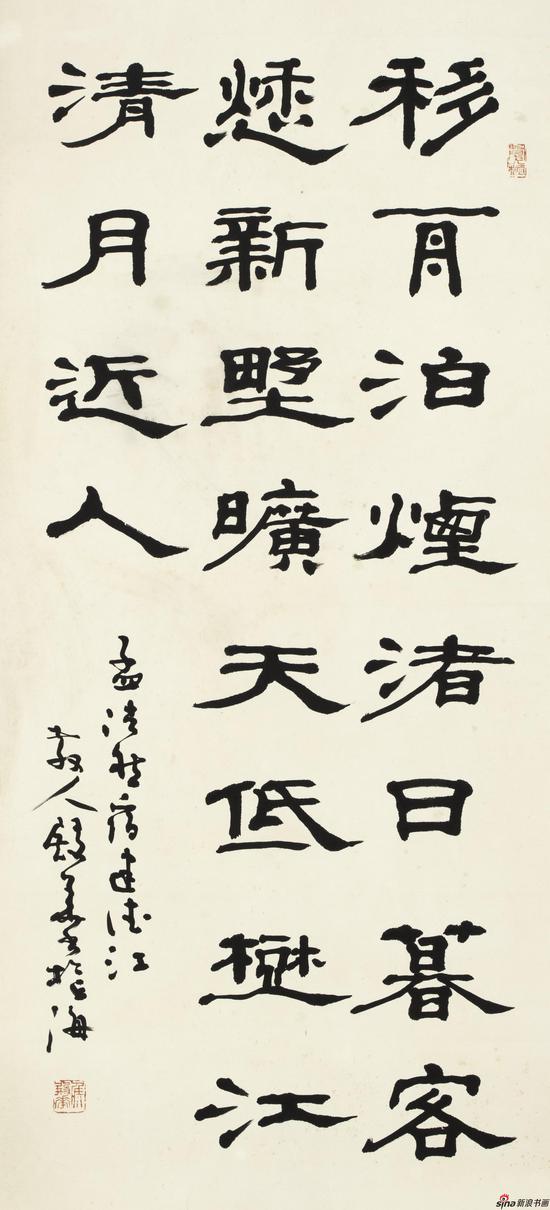 移舟泊煙渚日暮客
愁新野曠天低樹江
清月近人
孟浩然宿建德江
人書於上海
sina新浪书画